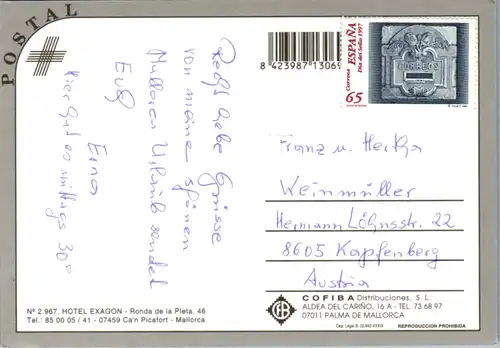 POSTAL
8 423987 13069
Correos ESPAÑA
Día del Sello 1997
CORREOS
65
Recht liebe Grüsse
von meinem schönen
Mallorca Urlaub sendet
Euch
Erna
hier hat es mittags 30°
Franz u. Hertha
Weinmüller
Hermann Lönsstr. 22
8605 Kapfenberg
Austria
Nº 2.967, HOTEL EXAGON - Ronda de la Pleta, 46
Tel.: 85 00 05 / 41 - 07459 Ca'n Picafort - Mallorca
COFIBA Distribuciones, S. L.
ALDEA DEL CARIÑO, 16 A - TEL. 73 68 97
07011 PALMA DE MALLORCA
REPRODUCCION PROHIBIDA